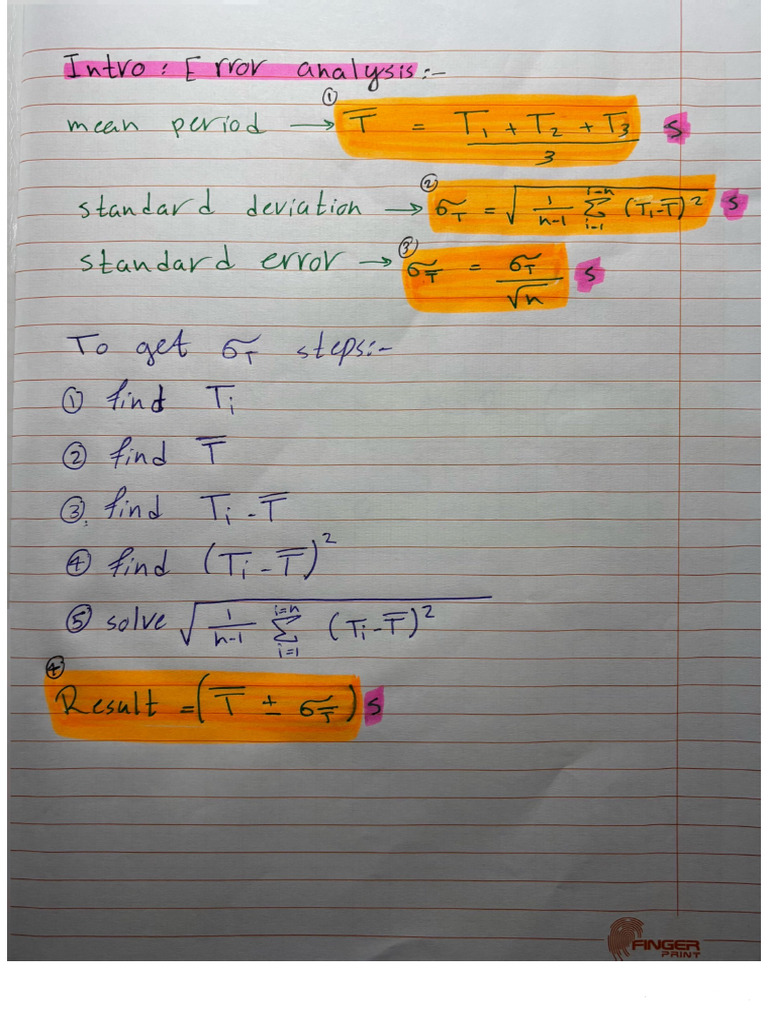 Intro: Error analysis:-
① mean period → T̅ = (T₁ + T₂ + T₃)/3 s
② standard deviation → σ_T = √(1/(n-1) Σ_{i-1}^{i-n} (Ti-T̅)²) s
③ standard error → σ_T̅ = σ_T/√n s
To get σ_T steps:-
① find Ti
② find T̅
③ find Ti - T̅
④ find (Ti - T̅)²
⑤ solve √(1/(n-1) Σ_{i=1}^{i=n} (Ti-T̅)²)
④ Result = (T̅ ± σ_T̅) s
FINGER
PRINT